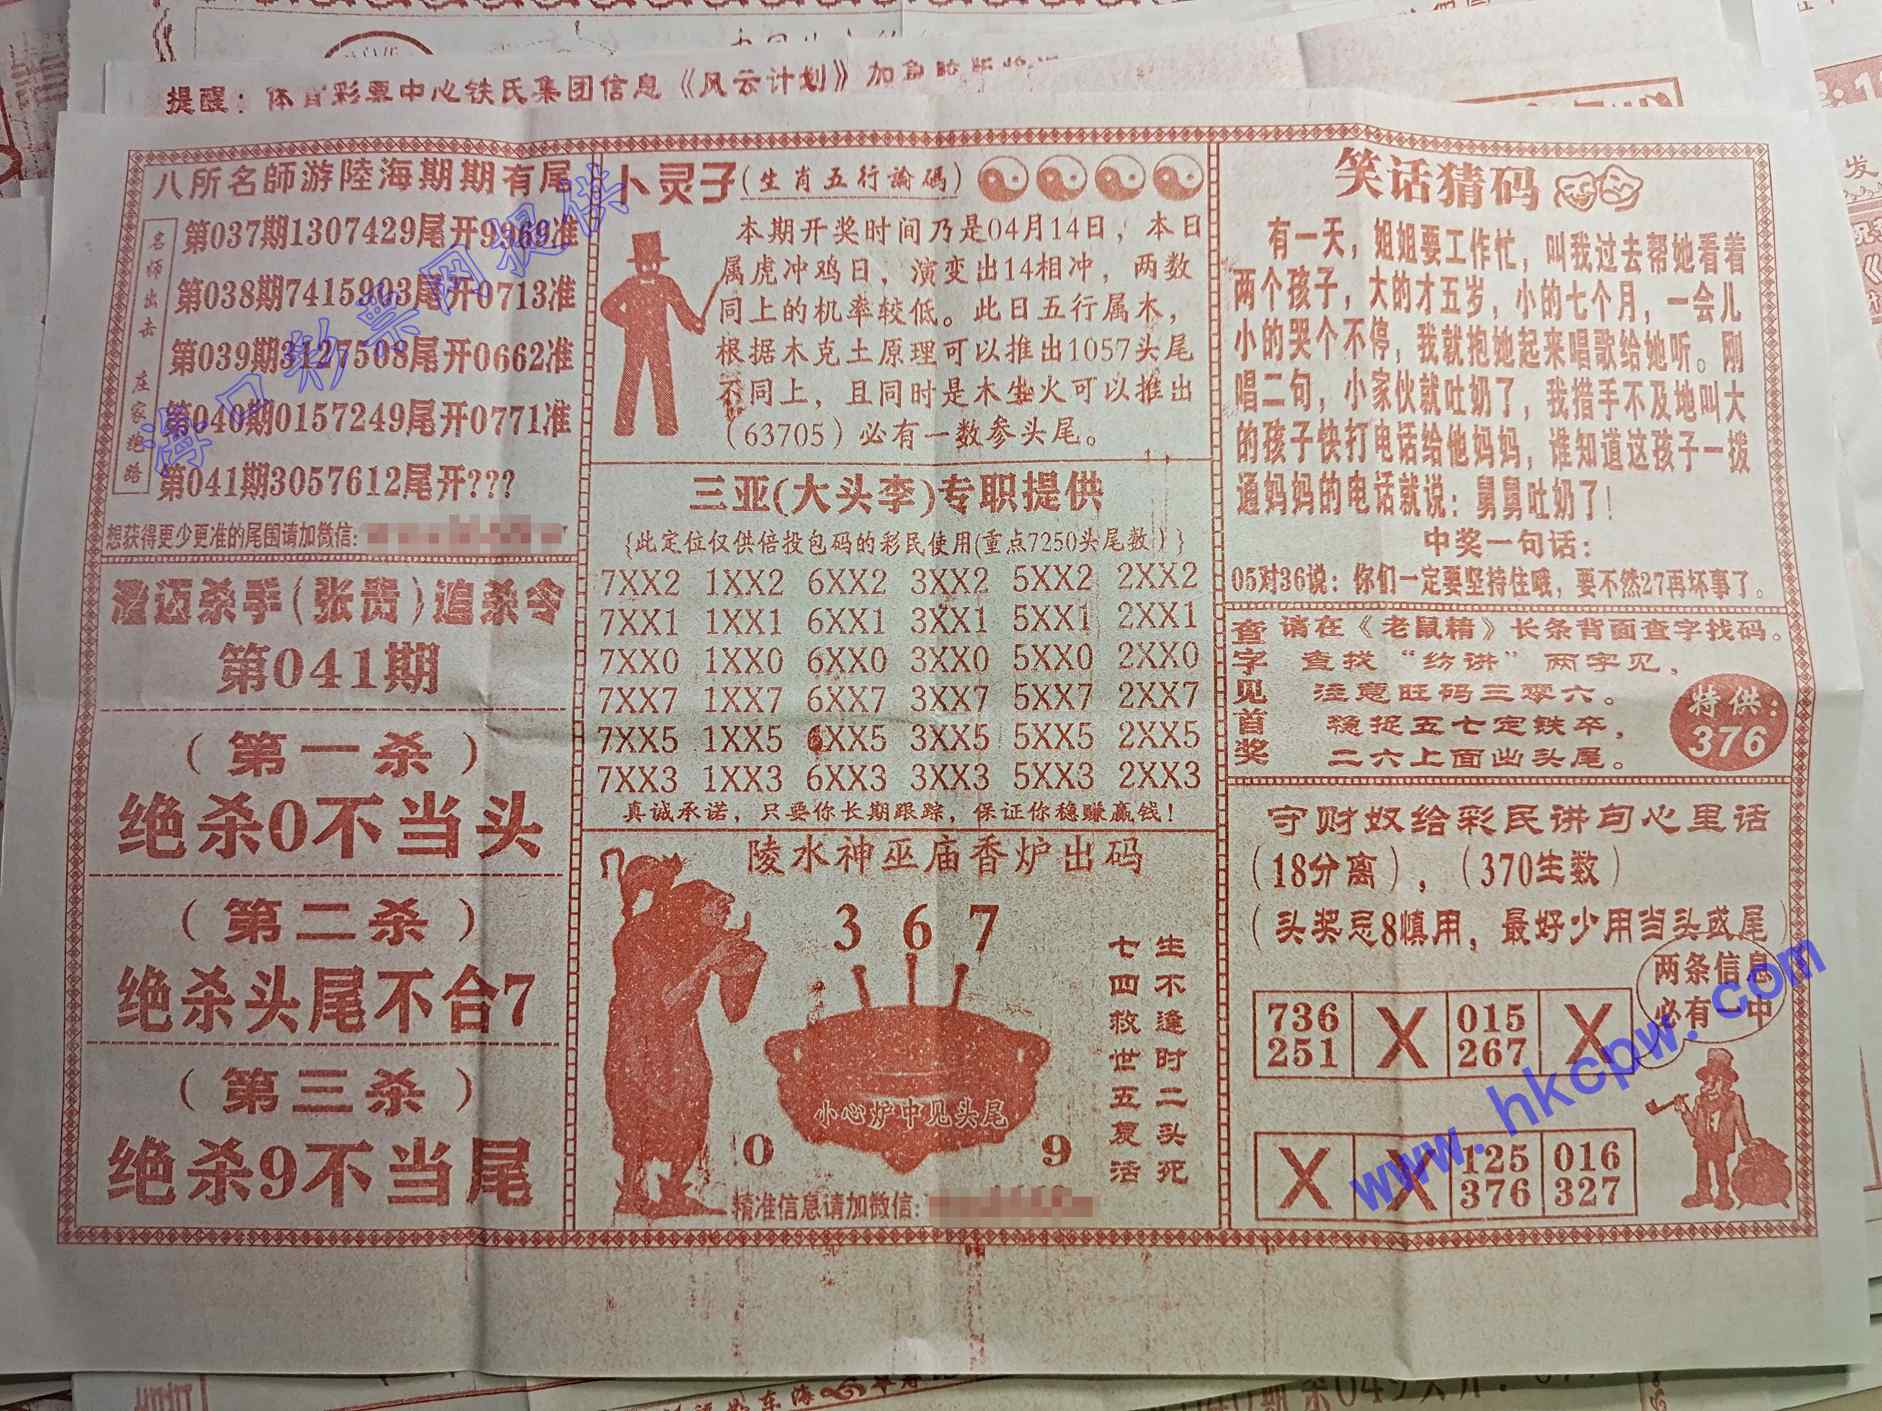 提醒：体育彩票中心铁氏集团信息《风云计划》加
八所名師游陸海期期有尾
名师出击 庄家绝路
第037期1307429尾开9969准
第038期7415903尾开0713准
第039期3127508尾开0662准
第040期0157249尾开0771准
第041期3057612尾开???
想获得更少更准的尾围请加微信:
澄迈杀手(张贵)追杀令
第041期
(第一杀)
绝杀0不当头
(第二杀)
绝杀头尾不合7
(第三杀)
绝杀9不当尾
卜灵子(生肖五行論碼)
本期开奖时间乃是04月14日，本日
属虎冲鸡日，演变出14相冲，两数
同上的机率较低。此日五行属木，
根据木克土原理可以推出1057头尾
不同上，且同时是木生火可以推出
(63705)必有一数参头尾。
三亚(大头李)专职提供
{此定位仅供倍投包码的彩民使用(重点7250头尾数)}
7XX2 1XX2 6XX2 3XX2 5XX2 2XX2
7XX1 1XX1 6XX1 3XX1 5XX1 2XX1
7XX0 1XX0 6XX0 3XX0 5XX0 2XX0
7XX7 1XX7 6XX7 3XX7 5XX7 2XX7
7XX5 1XX5 6XX5 3XX5 5XX5 2XX5
7XX3 1XX3 6XX3 3XX3 5XX3 2XX3
真诚承诺，只要你长期跟踪，保证你稳赚赢钱！
陵水神巫庙香炉出码
3 6 7
生不逢时二头死
七四救世五复活
小心炉中见头尾
0 9
精准信息请加微信:
笑话猜码
有一天，姐姐要工作忙，叫我过去帮她看着
两个孩子，大的才五岁，小的七个月，一会儿
小的哭个不停，我就抱她起来唱歌给她听。刚
唱二句，小家伙就吐奶了，我措手不及地叫大
的孩子快打电话给他妈妈，谁知道这孩子一拨
通妈妈的电话就说：舅舅吐奶了！
中奖一句话：
05对36说：你们一定要坚持住哦，要不然27再坏事了。
查字见首奖
请在《老鼠精》长条背面查字找码。
查找“纺讲”两字见，
注意旺码三零六。
稳捉五七定铁卒，
二六上面出头尾。
特供：
376
守财奴给彩民讲句心里话
(18分离)，(370生数)
(头奖忌8慎用，最好少用当头或尾)
两条信息
必有一中
736 X 015 X
251 267
X X 125 016
376 327
海口彩票网提供
www.hkcpw.com